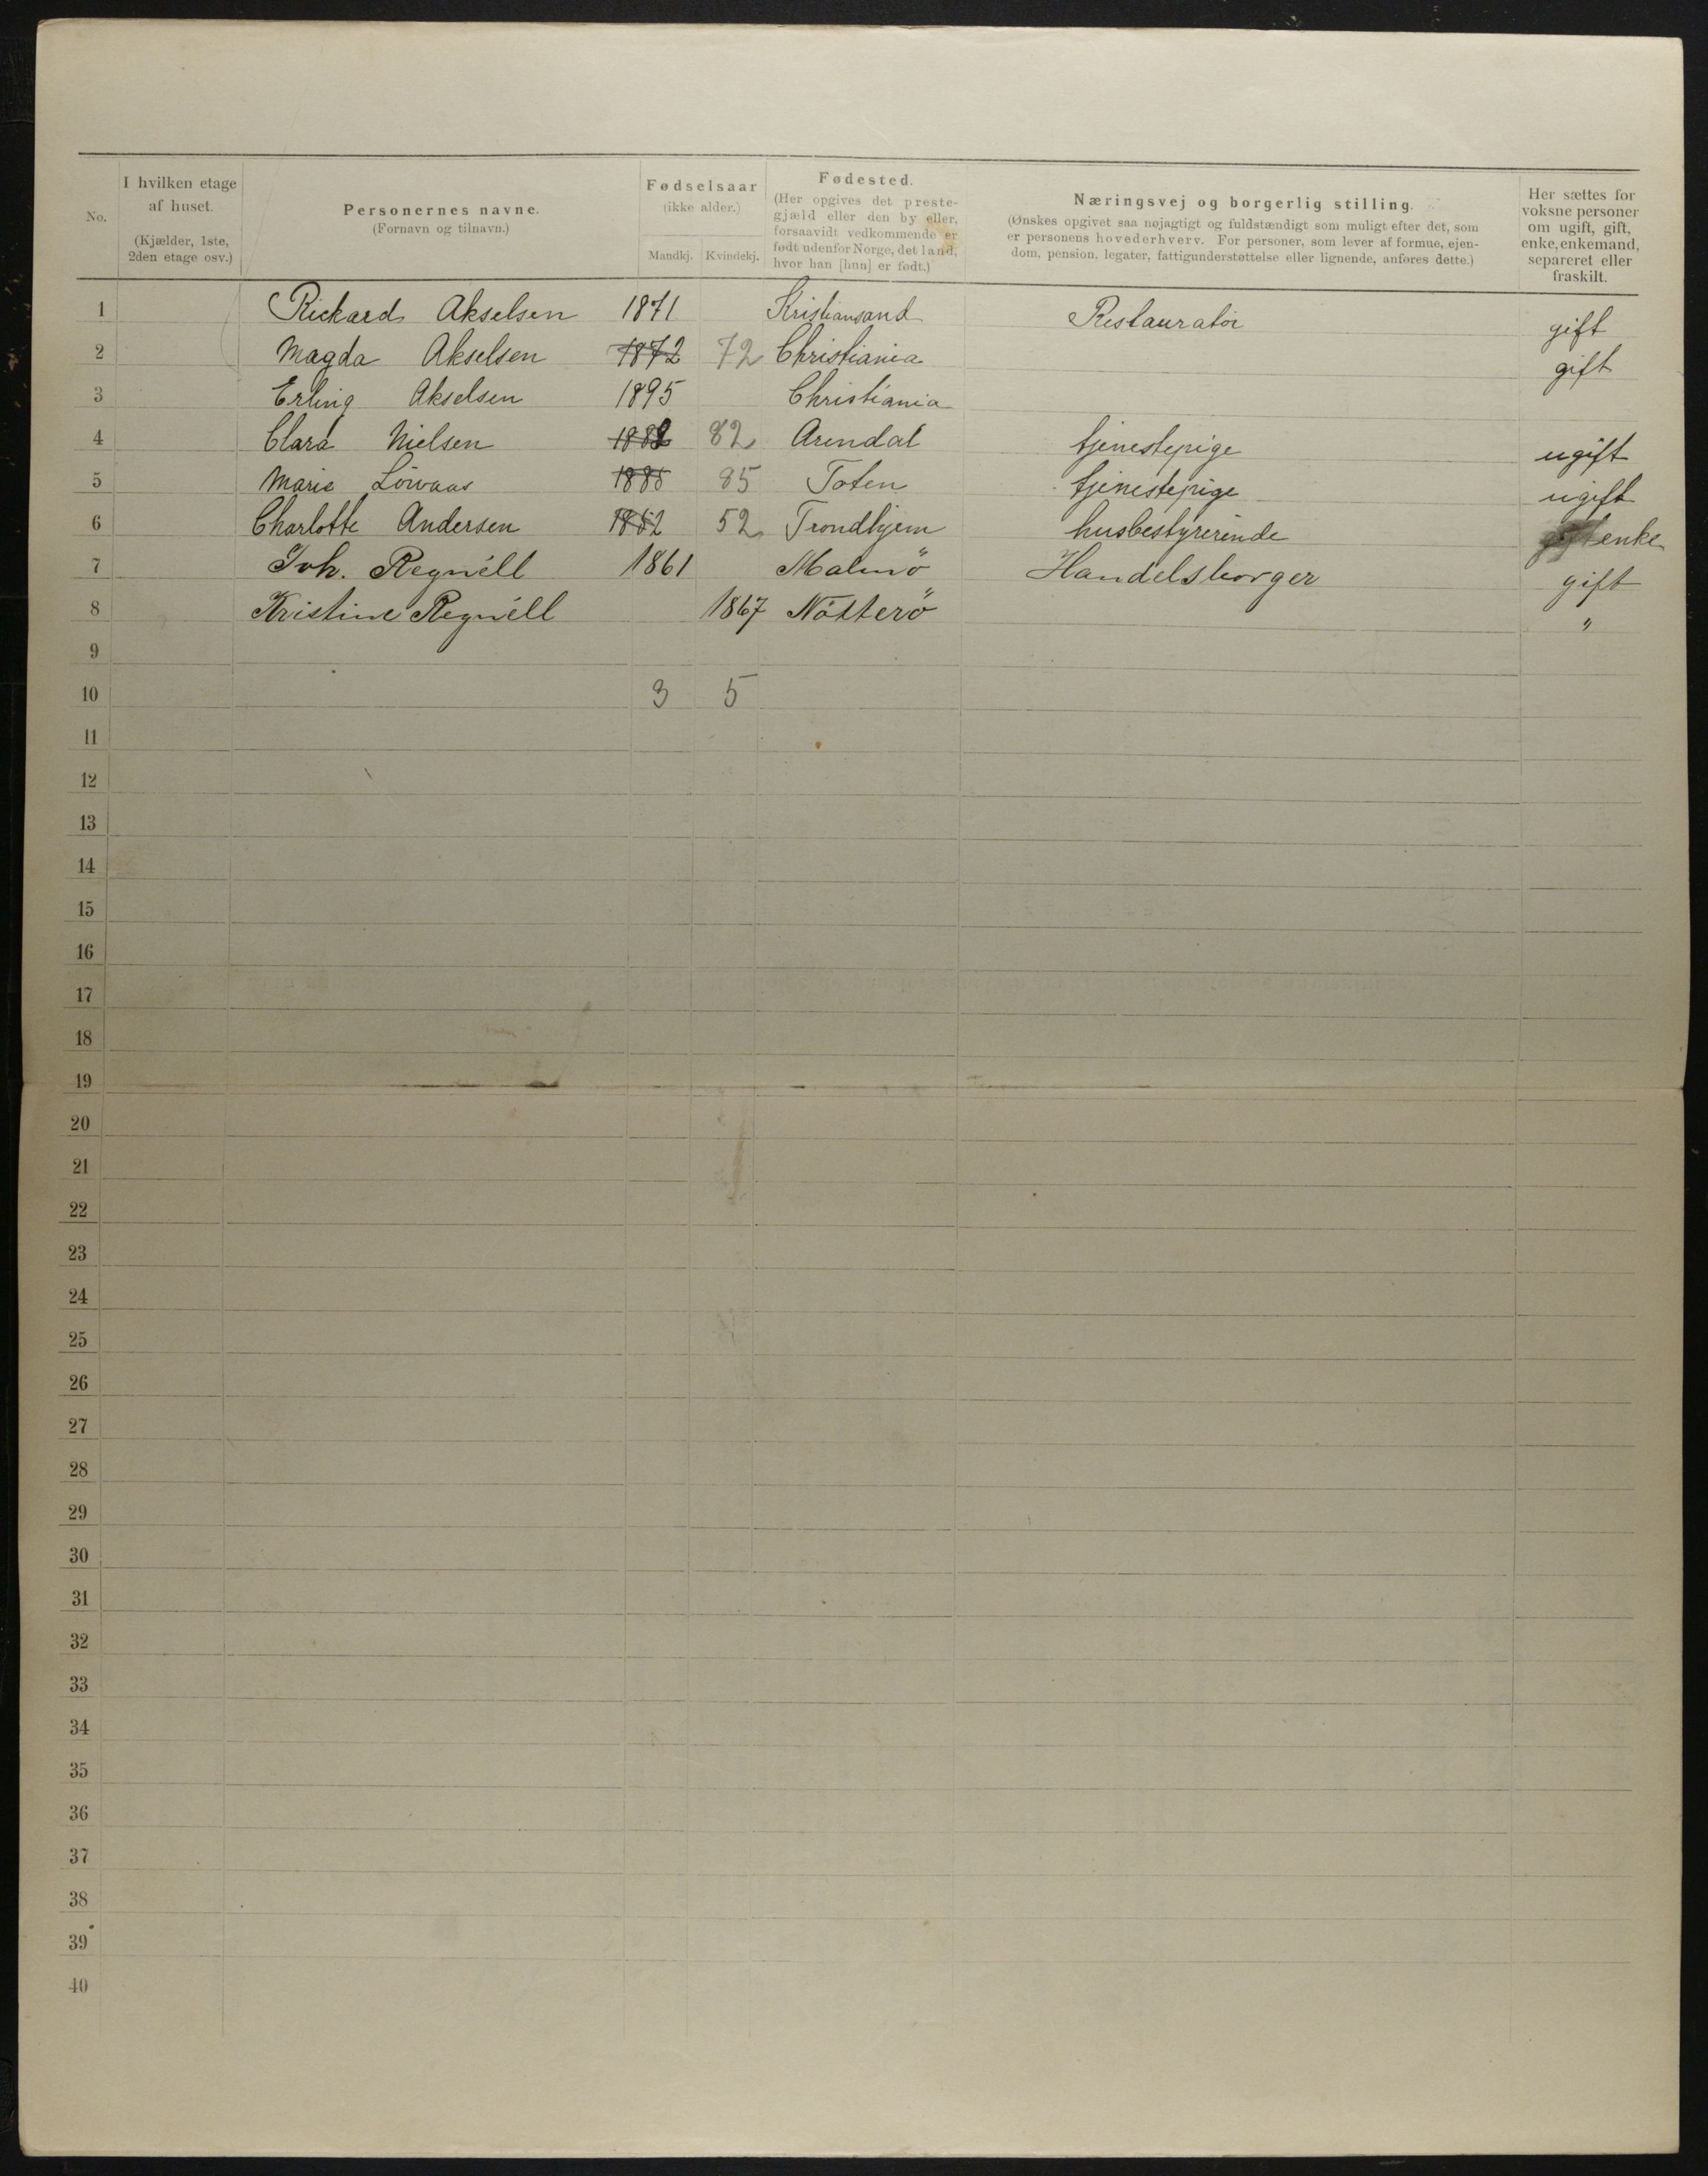 No.
I hvilken etage af huset. (Kjælder, 1ste, 2den etage osv.)
Personernes navne. (Fornavn og tilnavn.)
Fødselsaar (ikke alder.)
Mandkj. Kvindekj.
Fødested. (Her opgives det prestegjæld eller den by eller, forsaavidt vedkommende er født udenfor Norge, det land, hvor han [hun] er født.)
Næringsvej og borgerlig stilling. (Ønskes opgivet saa nøjagtigt og fuldstændigt som muligt efter det, som er personens hovederhverv. For personer, som lever af formue, ejendom, pension, legater, fattigunderstøttelse eller lignende, anføres dette.)
Her sættes for voksne personer om ugift, gift, enke, enkemand, separeret eller fraskilt.
1 Rickard Akselsen 1871 Kristiansand Restauratør gift
2 Magda Akselsen 1872 72 Christiania gift
3 Erling Akselsen 1895 Christiania
4 Clara Nielsen 1882 82 Arendal tjenestepige ugift
5 Marie Lövaas 1885 85 Toten tjenestepige ugift
6 Charlotte Andersen 1852 52 Trondhjem husbestyrerinde enke
7 Joh. Regnéll 1861 Malmö Handelsborger gift
8 Kristine Regnéll 1867 Nötterö "
9
10 3 5
11
12
13
14
15
16
17
18
19
20
21
22
23
24
25
26
27
28
29
30
31
32
33
34
35
36
37
38
39
40